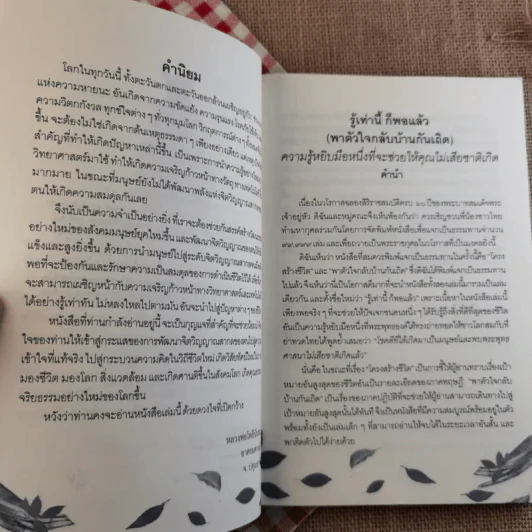 คำนิยม
โลกในทุกวันนี้ ทั้งตะวันตกและตะวันออกล้วนเผชิญอยู่กับ
แห่งความหายนะ อันเกิดจากความขัดแย้ง ความรุนแรง
ความวิตกกังวล ทุกข์ใจต่าง ๆ ทั่วทุกมุมโลก วิกฤตการณ์ต่างๆ
ขึ้น จะต้องไม่ใช่เกิดจากต้นเหตุธรรมดา ๆ เพียงอย่างเดียว
สำคัญที่ทำให้เกิดปัญหาเหล่านี้ขึ้น เป็นเพราะการนำความรู้
วิทยาศาสตร์มาใช้ ทำให้เกิดความเจริญก้าวหน้าทางวัตถุ
มากมาย ในขณะที่มนุษย์ยังไม่ได้พัฒนาพลังแห่งจิตวิญญาณ
ตนให้เกิดความสมดุลกันเลย
จึงนับเป็นความจำเป็นอย่างยิ่ง ที่เราจะต้องช่วยกันสรรค์สร้าง
อย่างใหม่ของสังคมมนุษย์ยุคใหม่ขึ้น และพัฒนาจิตวิญญาณของ
แข็งและสูงยิ่งขึ้น ด้วยการนำมนุษย์ไปสู่ระดับจิตวิญญาณ
พอที่จะป้องกันและรักษาความเป็นสมดุลของการดำเนินชีวิตไว้ได้
จะสามารถเผชิญหน้ากับความเจริญก้าวหน้าทางวิทยาศาสตร์
ได้อย่างรู้เท่าทัน ไม่หลงใหลไปตามมัน อันจะนำไปสู่ปัญหาต่าง ๆ
หนังสือที่ท่านกำลังอ่านอยู่นี้ จะเป็นกุญแจที่สำคัญที่จะช่วย
ใจของท่านให้เข้าสู่กระแสของการพัฒนาจิตวิญญาณสากลของตน
เข้าใจที่แท้จริง ไปสู่กระบวนความคิดในวิถีชีวิตใหม่ เกิดวิสัยทัศน์ใหม่ในการ
มองชีวิต มองโลก สิ่งแวดล้อม และเกิดศานติขึ้นในสังคมโลก
จริยธรรมอย่างใหม่ของโลกขึ้น
หวังว่าท่านคงจะอ่านหนังสือเล่มนี้ ด้วยดวงใจที่เปิดกว้าง
รู้เท่านี้ ก็พอแล้ว
(พาตัวใจกลับบ้านกันเถิด)
ความรู้หยิบมือหนึ่งที่จะช่วยให้คุณไม่เสียชาติเกิด
คำนำ
เนื่องในวโรกาสฉลองสิริราชสมบัติครบ ๖๐ ปีของพระบาทสมเด็จพระ
เจ้าอยู่หัว ดิฉันและหมู่คณะจึงเห็นพ้องกันว่า ควรเชิญชวนพี่น้องชาวไทย
ทำมหากุศลร่วมกันโดยการจัดพิมพ์หนังสือเพื่อแจกเป็นธรรมทานจำนวน
๙๙,๙๙๙ เล่ม และเพื่อถวายเป็นพระราชกุศลในโอกาสที่เป็นมงคลยิ่งนี้
ดิฉันเห็นว่า หนังสือที่สมควรพิมพ์แจกเป็นธรรมทานในครั้งนี้คือ "ใคร
สร้างชีวิต" และ "พาตัวใจกลับบ้านกันเถิด" ซึ่งดิฉันได้พิมพ์แจกเป็นธรรมทาน
ไปแล้ว จึงเห็นว่านี่เป็นโอกาสดีมากที่จะนำหนังสือทั้งสองเล่มนี้มารวมเป็นเล่ม
เดียวกัน และตั้งชื่อใหม่ว่า "รู้เท่านี้ ก็พอแล้ว" เพราะเนื้อหาในหนังสือเล่มนี้
เพียงพอจริง ๆ ที่จะช่วยให้ปัจเจกชนคนหนึ่ง ๆ ได้รับรู้ถึงสิ่งที่ดีที่สุดของชีวิต
อันเป็นความรู้หยิบมือหนึ่งที่พระพุทธองค์ได้ทรงถ่ายทอดให้ชาวโลกสมกับที่
ปวดไทยได้พูดย้ำเสมอว่า "โชคดีที่ได้เกิดมาเป็นมนุษย์และพบพระพุทธ
ศาสนา ไม่เสียชาติเกิดแล้ว"
นั่นคือ ในขณะที่เรื่อง "ใครสร้างชีวิต" เป็นการชี้ให้ผู้อ่านทราบเรื่องเป้า
หมายอันสูงสุดของชีวิตอันเป็นรายละเอียดของภาคทฤษฎี "พาตัวใจกลับ
บ้านกันเถิด" เป็นเรื่องของภาคปฏิบัติที่จะช่วยให้ผู้อ่านสามารถเดินทางไปสู่
เป้าหมายอันสูงสุดนั้นได้ทันที จึงเป็นหนังสือที่มีความสมบูรณ์พร้อมอยู่ในตัว
พร้อมทั้งยังเป็นเล่มเล็ก ๆ ที่สามารถอ่านให้จบได้ในระยะเวลาอันสั้น และ
พกติดตัวไปได้ง่ายด้วย